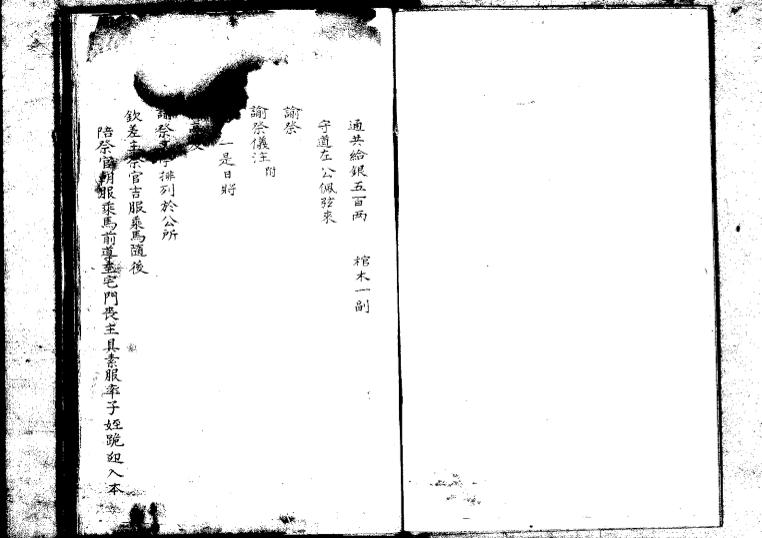 通共給銀五百兩 棺木一副
守道左公佩弦來
諭祭
諭祭儀注附
一是日將
文
諭祭 亭排列於公所
欽差主祭官吉服乘馬隨後
陪祭官朝服乘馬前導至宅門喪主具素服率子姪跪迎入本